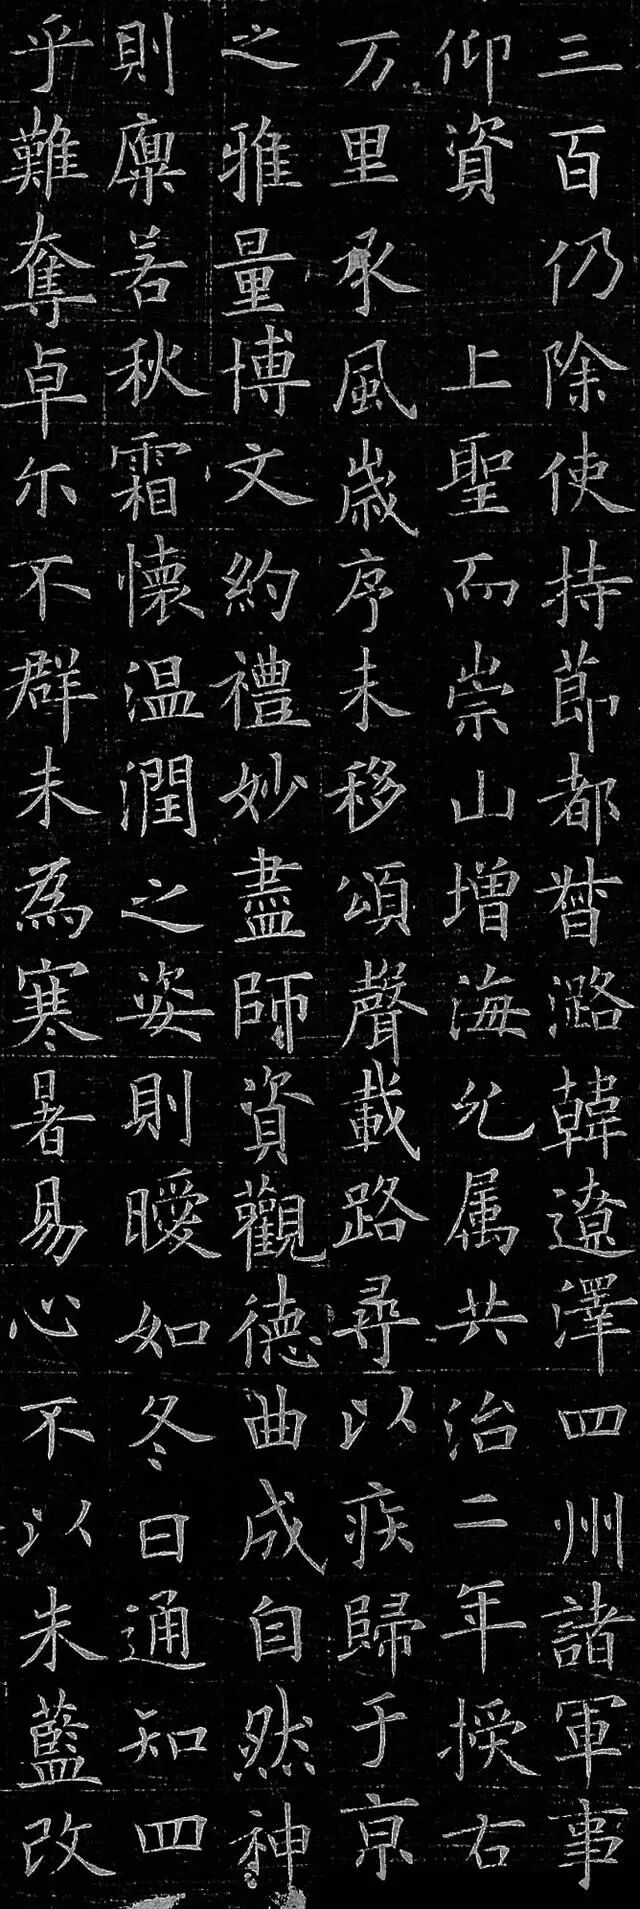 三百仍除使持節都督潞韓遼澤四州諸軍事
仰資上聖而崇山增海允属共治二年授右
万里承風歲序未移頌聲載路尋以疾歸于京
之雅量博文約禮妙盡師資觀德曲成自然神
則凜若秋霜懷温潤之姿則曖如冬日通知四
乎難奪卓尓不群未為寒暑易心不以朱藍改